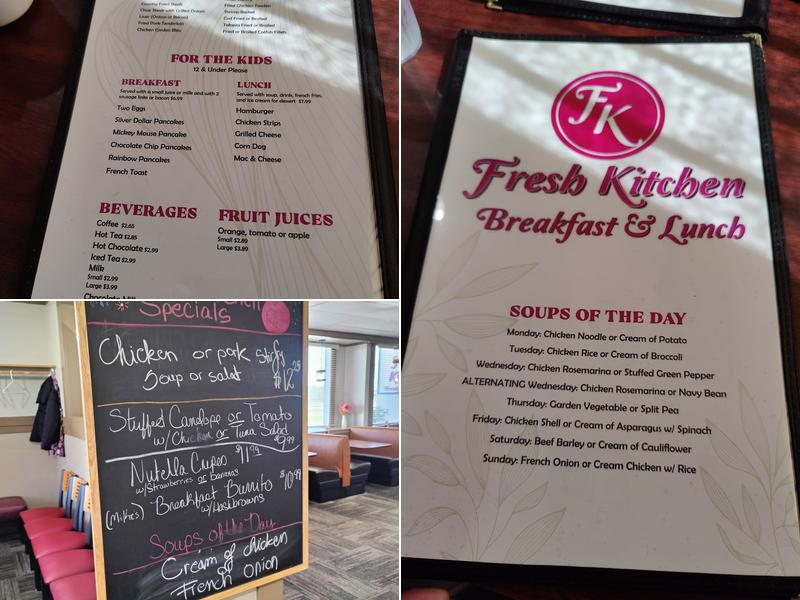 Country Fried Steak
Chop Steak with Grilled Onions
Liver (Onions or Bacon)
Fried Pork Tenderloin
Chicken Cordon Bleu
Fried Chicken Tenders
Shrimp Basket
Cod Fried or Broiled
Tilapia Fried or Broiled
Fried or Broiled Catfish Fillets
FOR THE KIDS
12 & Under Please
BREAKFAST
Served with a small juice or milk and with 2
sausage links or bacon $6.99
Two Eggs
Silver Dollar Pancakes
Mickey Mouse Pancake
Chocolate Chip Pancakes
Rainbow Pancakes
French Toast
LUNCH
Served with soup, drink, french fries,
and ice cream for dessert $7.99
Hamburger
Chicken Strips
Grilled Cheese
Corn Dog
Mac & Cheese
BEVERAGES
Coffee $2.65
Hot Tea $2.85
Hot Chocolate $2.99
Iced Tea $2.99
Milk
Small $2.99
Large $3.99
Chocolate Milk
FRUIT JUICES
Orange, tomato or apple
Small $2.89
Large $3.89
FK
Fresh Kitchen
Breakfast & Lunch
SOUPS OF THE DAY
Monday: Chicken Noodle or Cream of Potato
Tuesday: Chicken Rice or Cream of Broccoli
Wednesday: Chicken Rosemarina or Stuffed Green Pepper
ALTERNATING Wednesday: Chicken Rosemarina or Navy Bean
Thursday: Garden Vegetable or Split Pea
Friday: Chicken Shell or Cream of Asparagus w/ Spinach
Saturday: Beef Barley or Cream of Cauliflower
Sunday: French Onion or Cream Chicken w/ Rice
Specials
Chicken or pork Stirfry
Soup or salad $12.25
Stuffed Canelope or Tomato
w/ Chicken or Tuna Salad $9.99
Nutella Crepes $11.99
w/strawberries or bananas
(Mike's) Breakfast Burrito $10.99
w/Hashbrowns
Soups of the Day
Cream of chicken
French onion